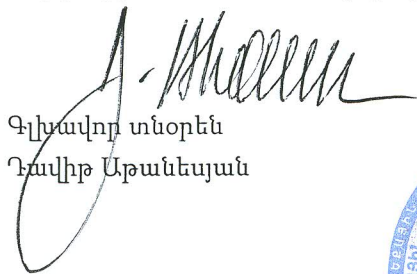 Գլխավոր տնօրեն
Դավիթ Աթանեսյան